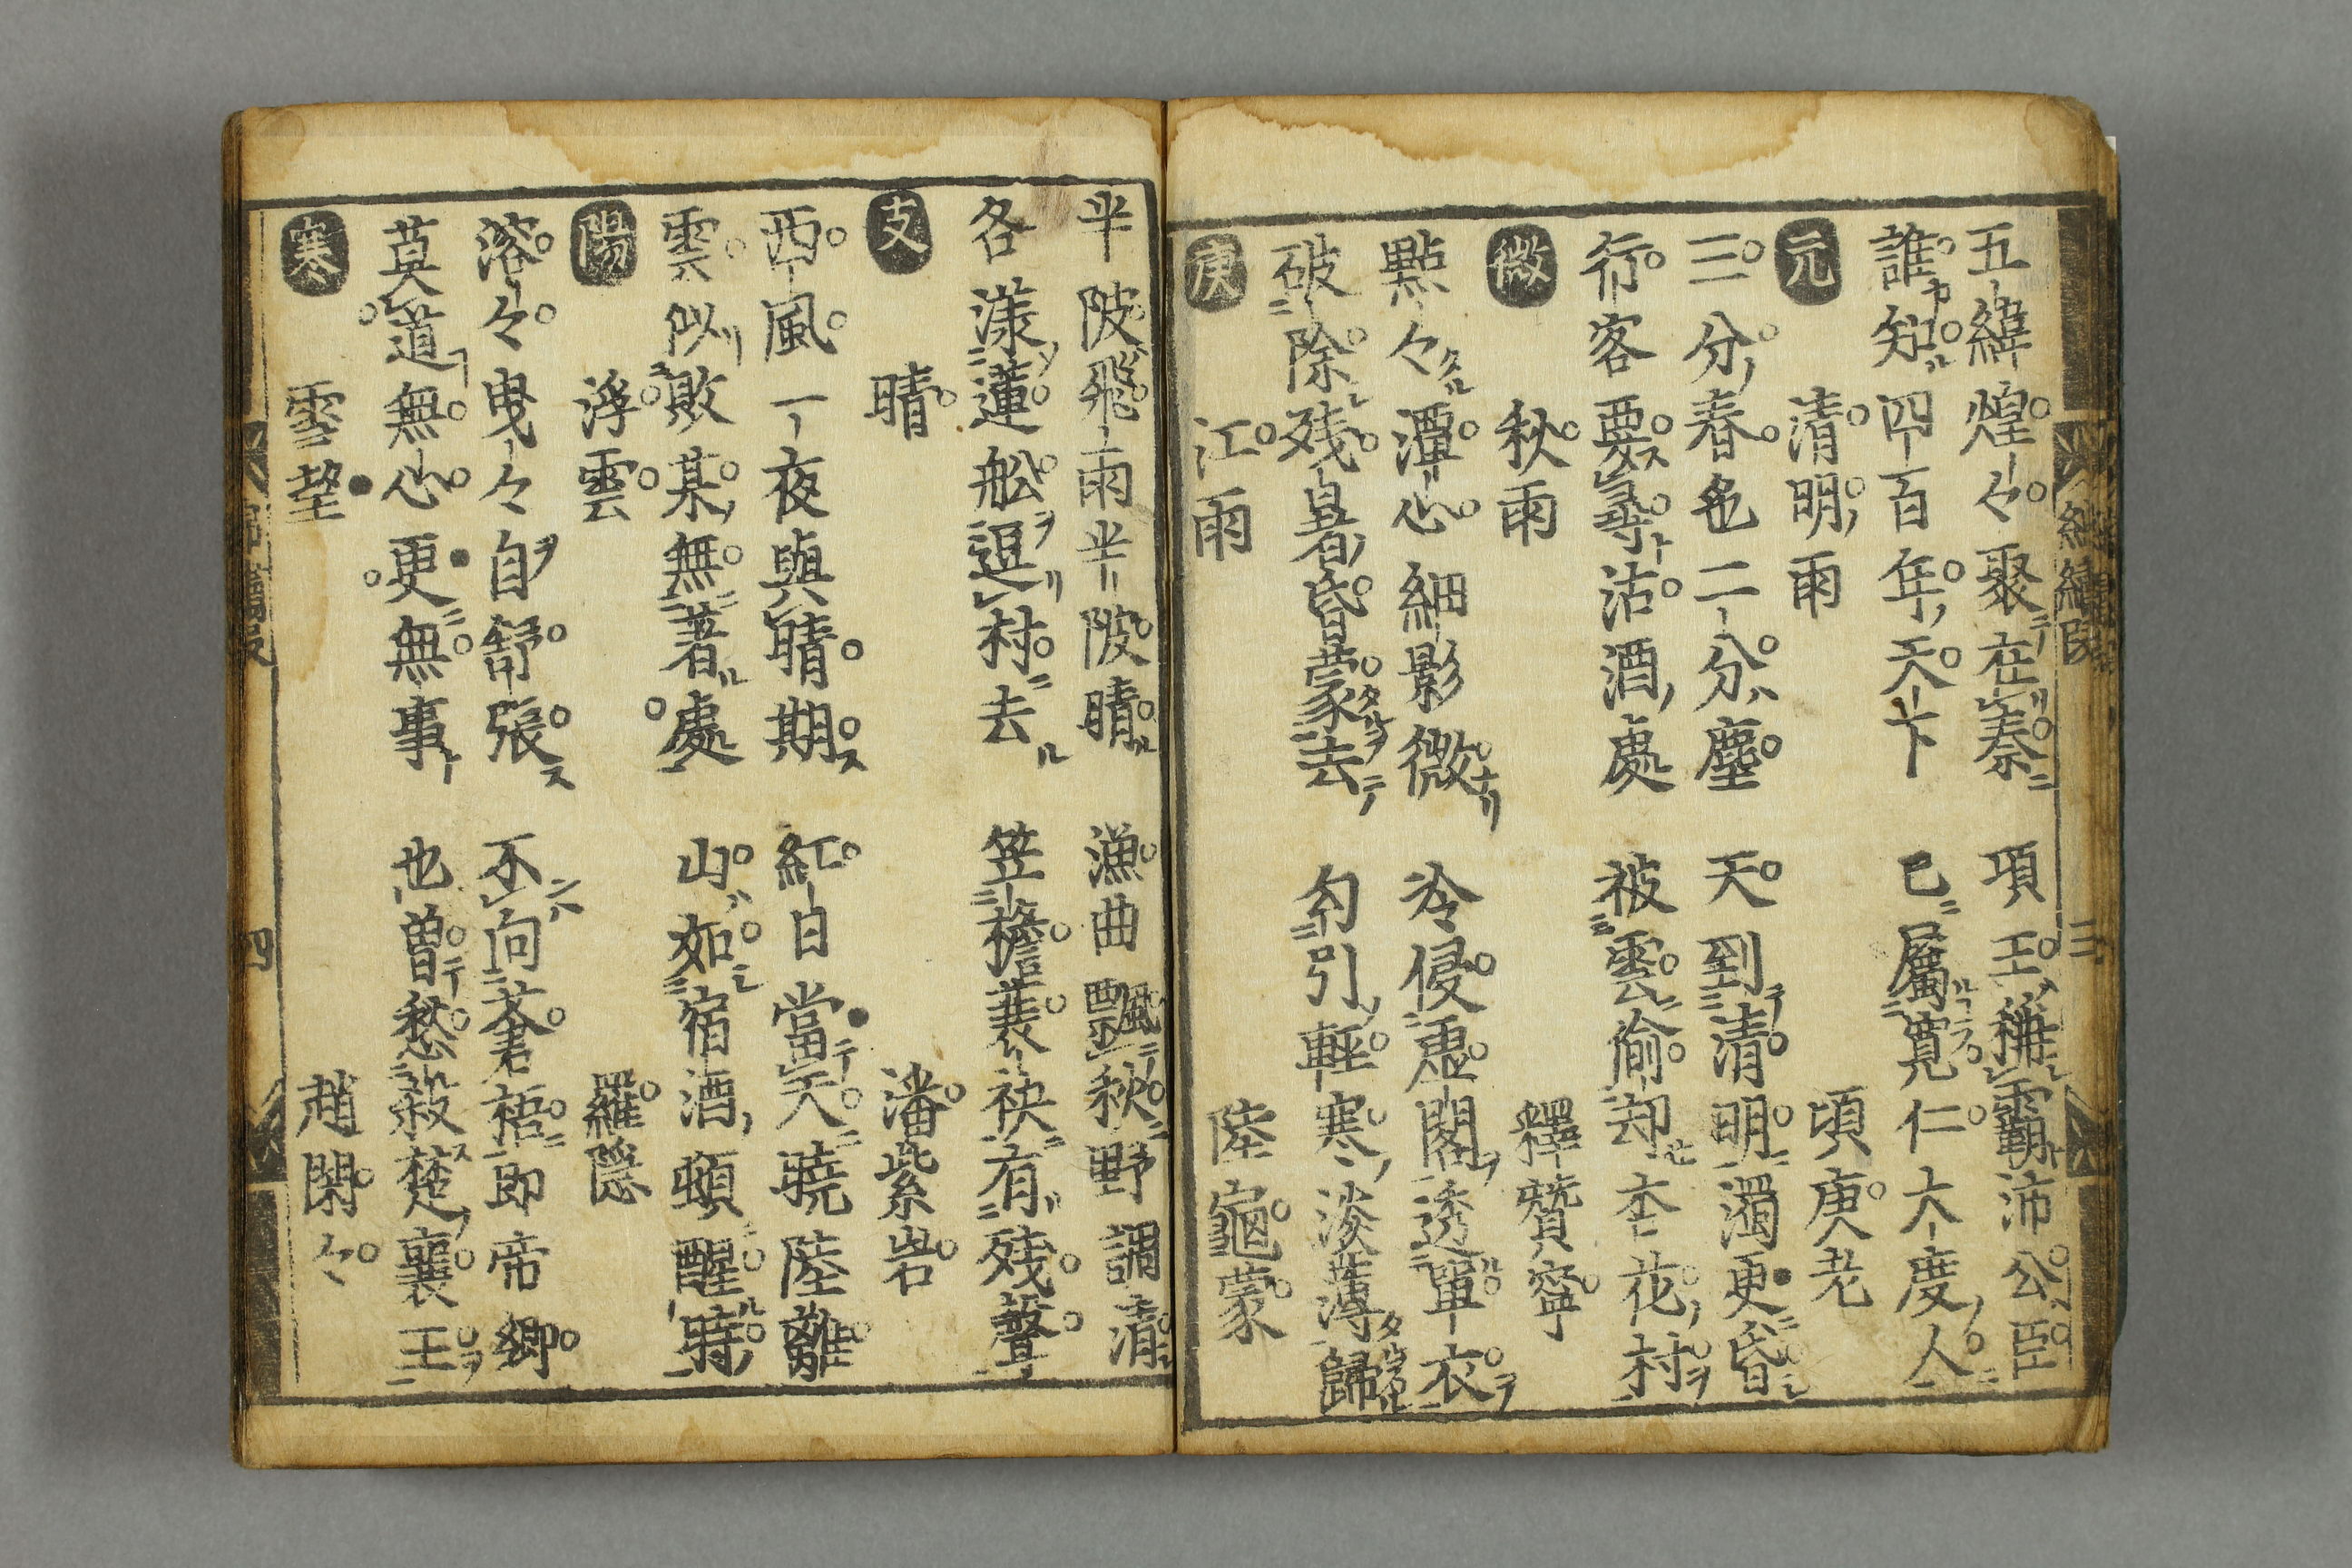 五緯煌々聚在秦 項王稱霸沛公臣
誰知四百年天下 已屬寬仁大度人
元 清明雨 項庚老
三分春色二分塵 天到清明濁更昏
行客要尋沽酒處 被雲偷却杏花村
微 秋雨 釋贊寧
點々潭心細影微 冷侵虛閣透單衣
破除殘暑昏蒙去 勾引輕寒淡薄歸
庚 江雨 陸龜蒙
半陂飛雨半陂晴 漁曲飄秋野調清
各漾蓮船逗村去 笠檐蓑袂有殘聲
支 晴 潘紫岩
西風一夜與晴期 紅日當天曉陸離
雲似敗棊無著處 山如宿酒頓醒時
陽 浮雲 羅隱
溶々曳々自舒張 不向蒼梧即帝鄉
莫道無心更無事 也曾愁殺楚襄王
寒 雪望 趙閑々
三
四